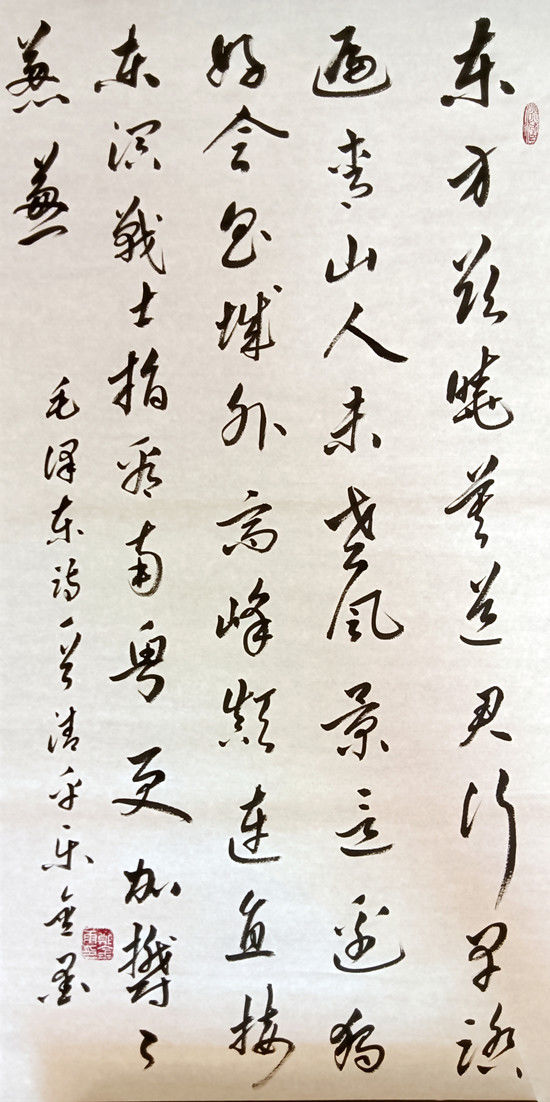 东方欲晓莫道君行早踏
遍青山人未老风景这边独
好会昌城外高峰颠连直接
东溟战士指看南粤更加鬱々
葱葱
毛泽东诗一首清平乐金墨